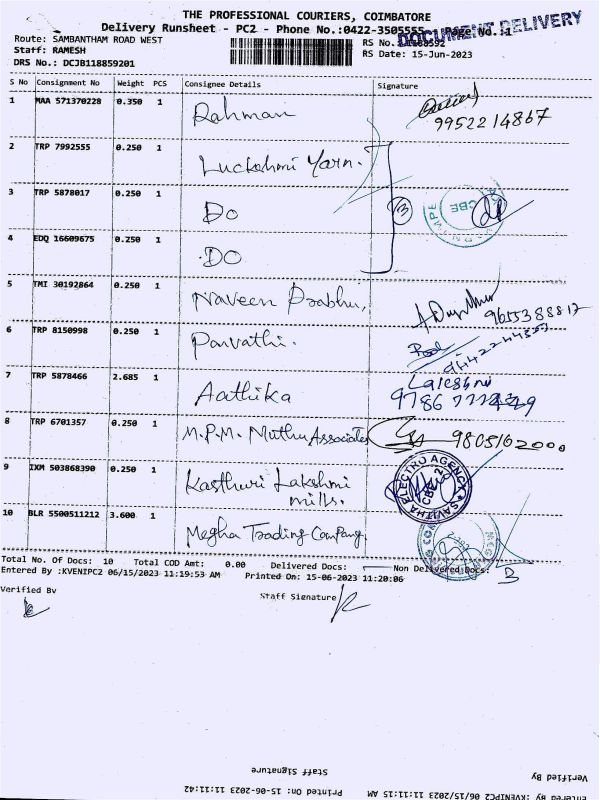 THE PROFESSIONAL COURIERS, COIMBATORE
Delivery Runsheet - PC2 - Phone No.:0422-3505555 Page No.:1
DOCUMENT DELIVERY
Route: SAMBANTHAM ROAD WEST
RS No.
Staff: RAMESH
RS Date: 15-Jun-2023
DRS No.: DCJB118859201
S No Consignment No Weight PCS Consignee Details Signature
1 MAA 571370228 0.350 1 Rahman
9952214867
2 TRP 7992555 0.250 1 Luckshmi Yarn.
3 TRP 5878017 0.250 1 Do
CBE
4 EDQ 16609675 0.250 1 Do
5 TMI 30192864 0.250 1 Naveen Prabhu,
9655388817
6 TRP 8150998 0.250 1 Parvathi.
7 TRP 5878466 2.685 1 Aathika
8 TRP 6701357 0.250 1 M.P.M. Muthu Associates
9805102000
9 IXM 503868390 0.250 1 Kasthuri Lakshmi
mills.
SAVITHA ELECTRO AGENCY
CBE-2
10 BLR 5500511212 3.600 1 Megha Trading Company
Total No. Of Docs: 10 Total COD Amt: 0.00 Delivered Docs: Non Delivered Docs: 3
Entered By :KVENIPC2 06/15/2023 11:19:53 AM Printed On: 15-06-2023 11:20:06
Verified By Staff Signature
Staff Signature
Verified By
Printed On: 15-06-2023 11:11:42
Entered By :KVENIPC2 06/15/2023 11:11:15 AM